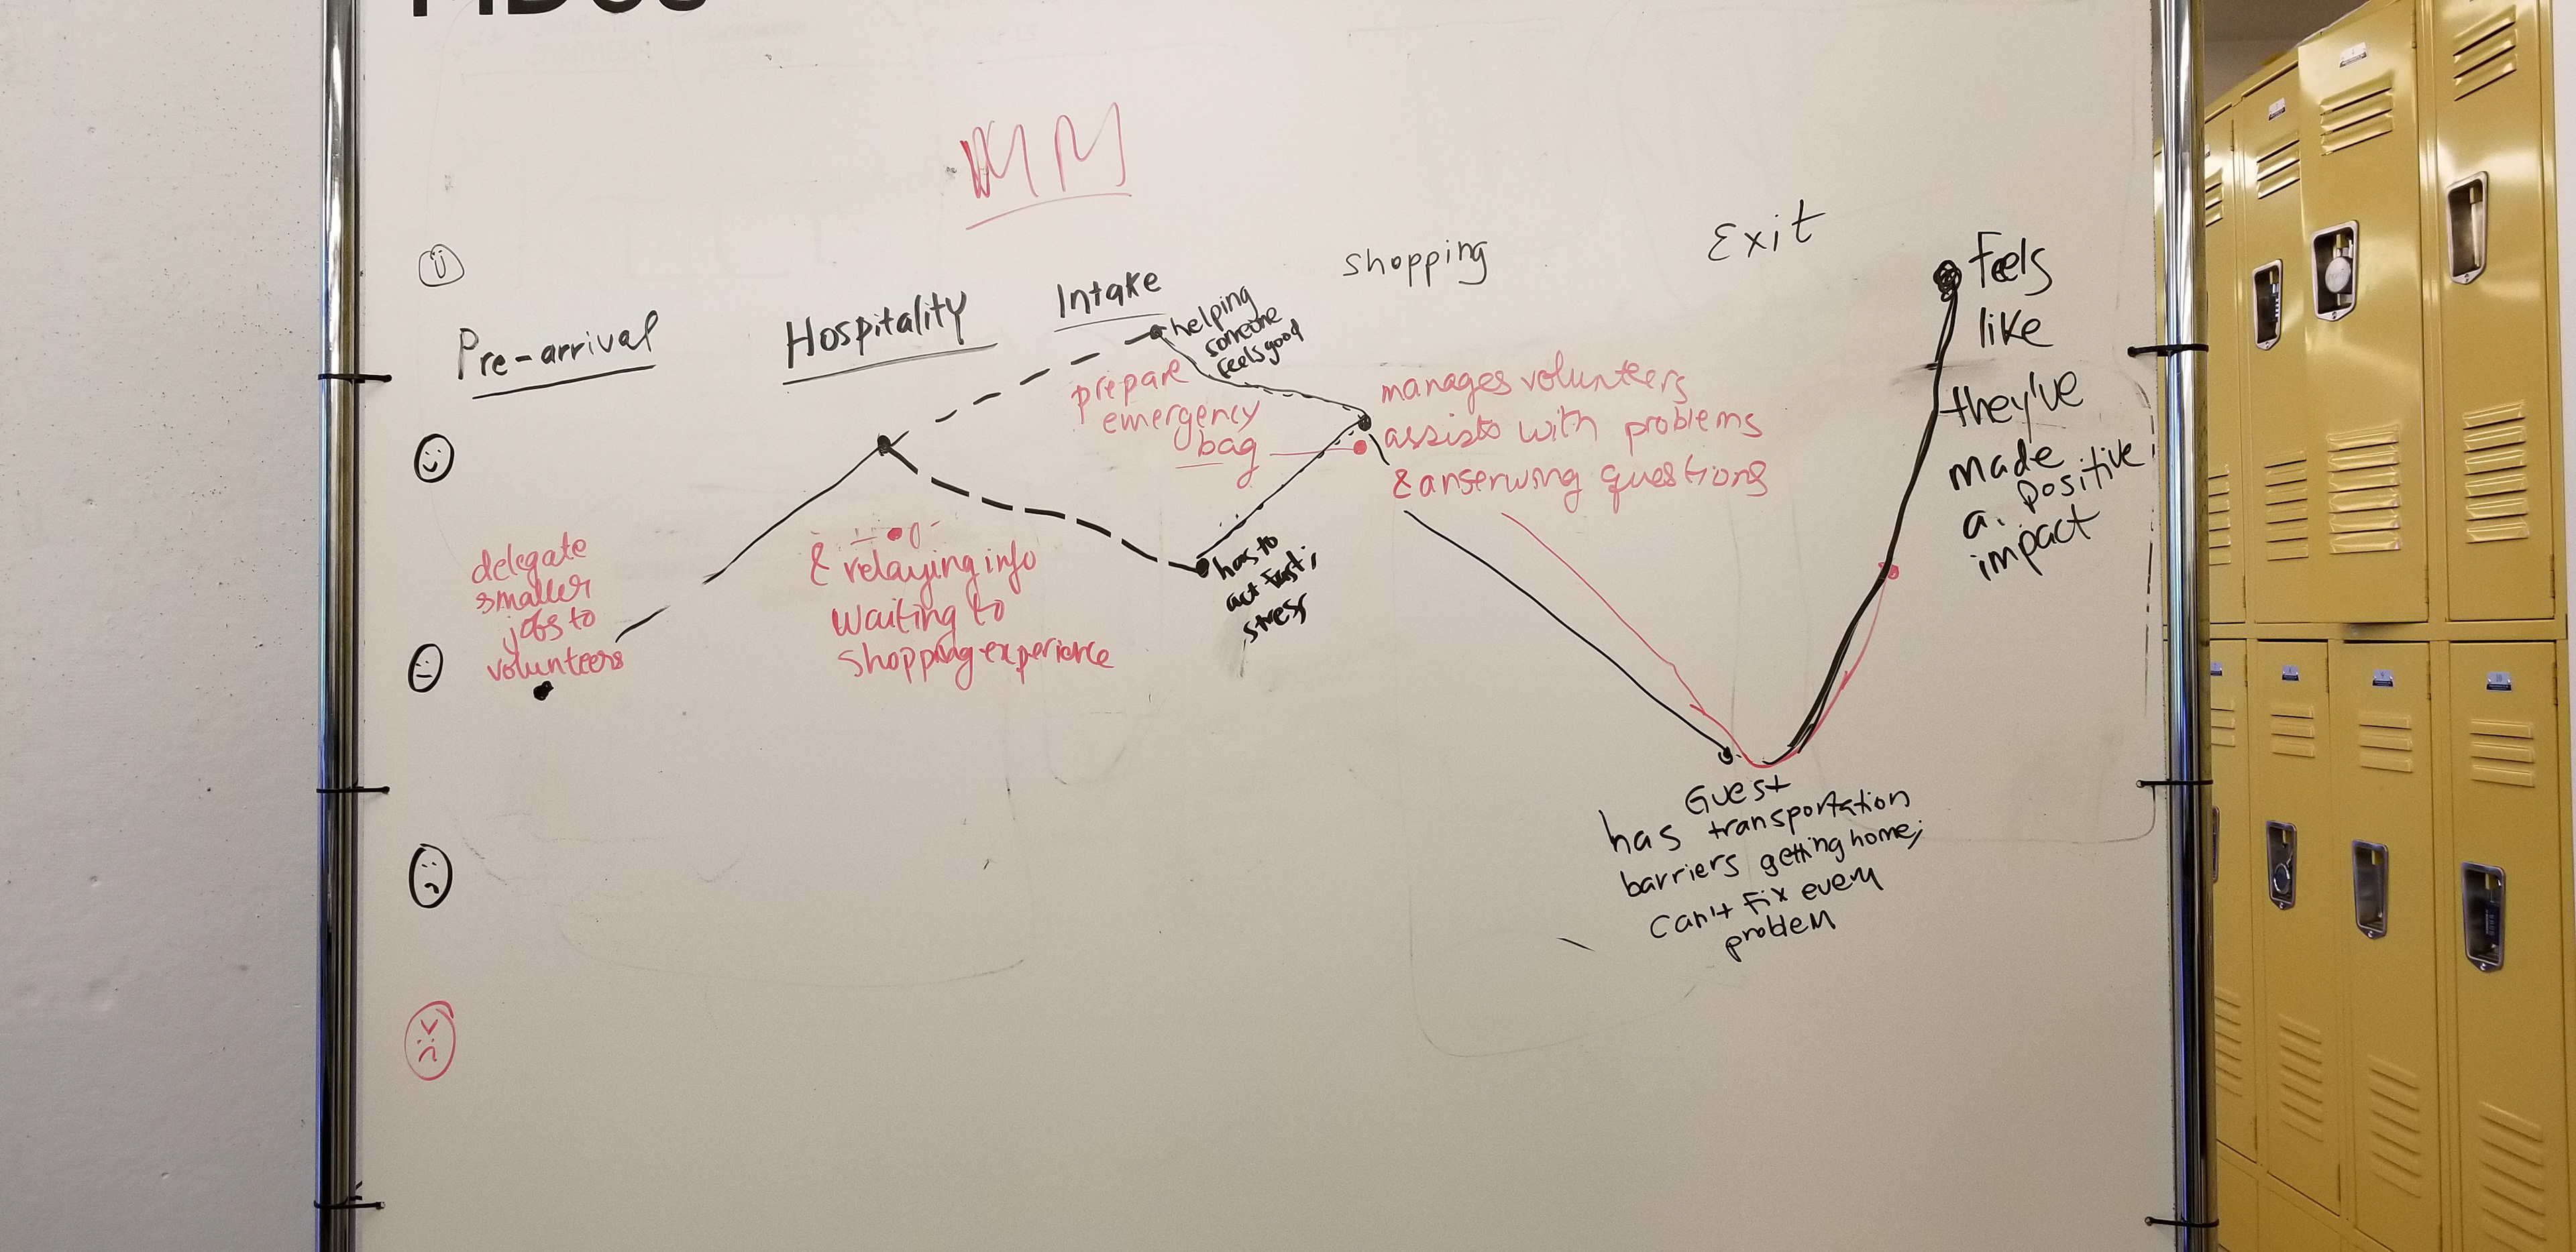 MM
Pre-arrival
Hospitality
Intake
Shopping
Exit
delegate
smaller
jobs to
volunteers
& relaying info
waiting to
shopping experience
helping
someone
feels good
prepare
emergency
bag
has to
act fast;
stress
manages volunteers
assists with problems
& anserwing questions
Guest
has transportation
barriers getting home;
can't fix every
problem
feels
like
they've
made
a positive
impact